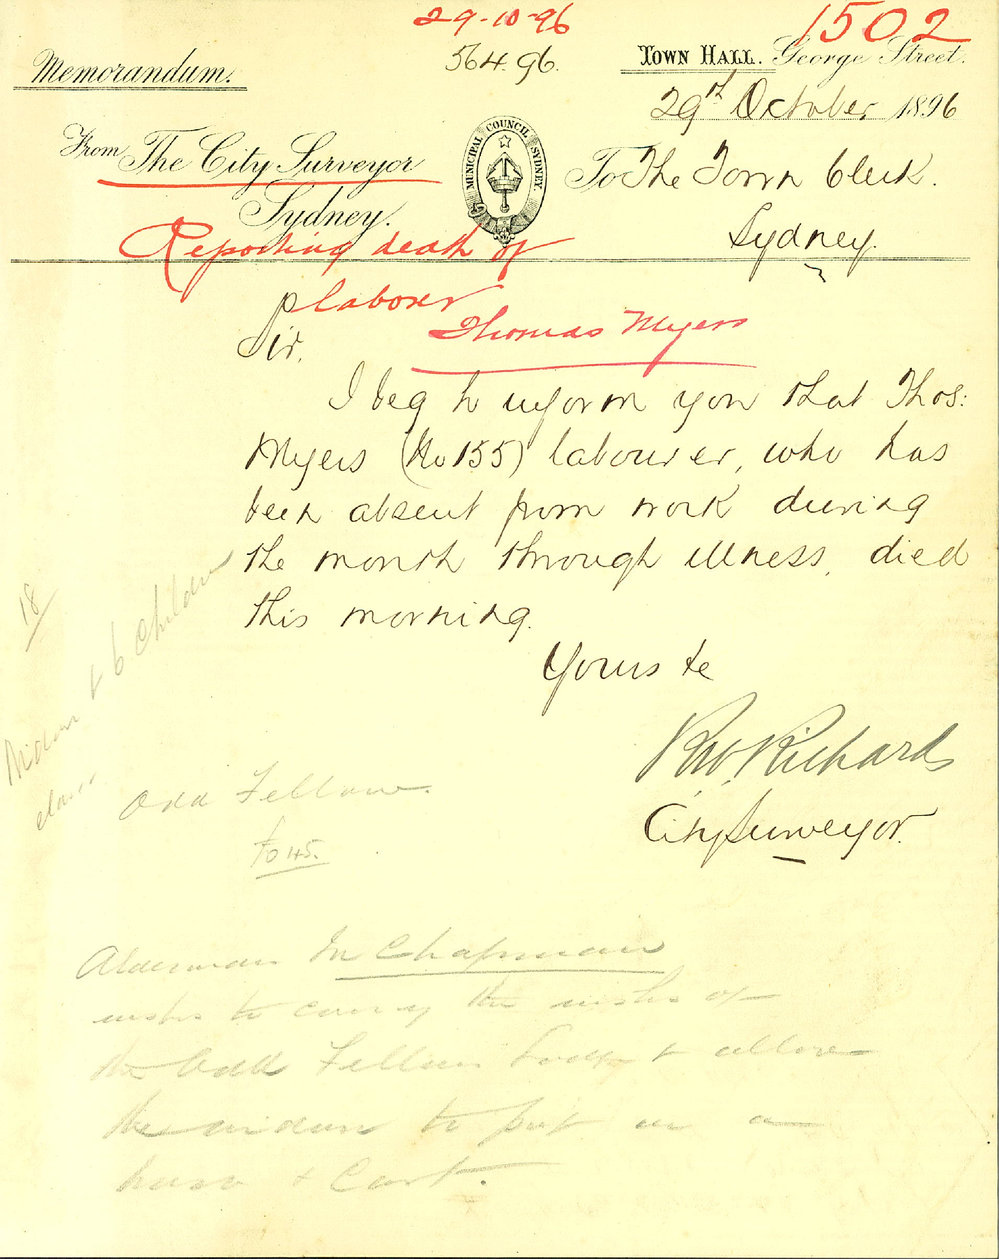 29-10-96
1502
564.96.
Memorandum.
TOWN HALL. George Street.
29th October, 1896
From The City Surveyor
Sydney.
MUNICIPAL COUNCIL SYDNEY.
To The Town Clerk.
Sydney.
Reporting death of
laborer
Thomas Myers
Sir,
I beg to inform you that Thos:
Myers (No 155) labourer, who has
been absent from work during
the month through illness, died
this morning.
Yours &c
R.W. Richards
City Surveyor.
18
Widow & 6 Children
Odd Fellow.
Alderman McChapman
wishes to carry the wishes of
the Odd Fellows Lodge & allow
the widow to put on a
horse & Cart.